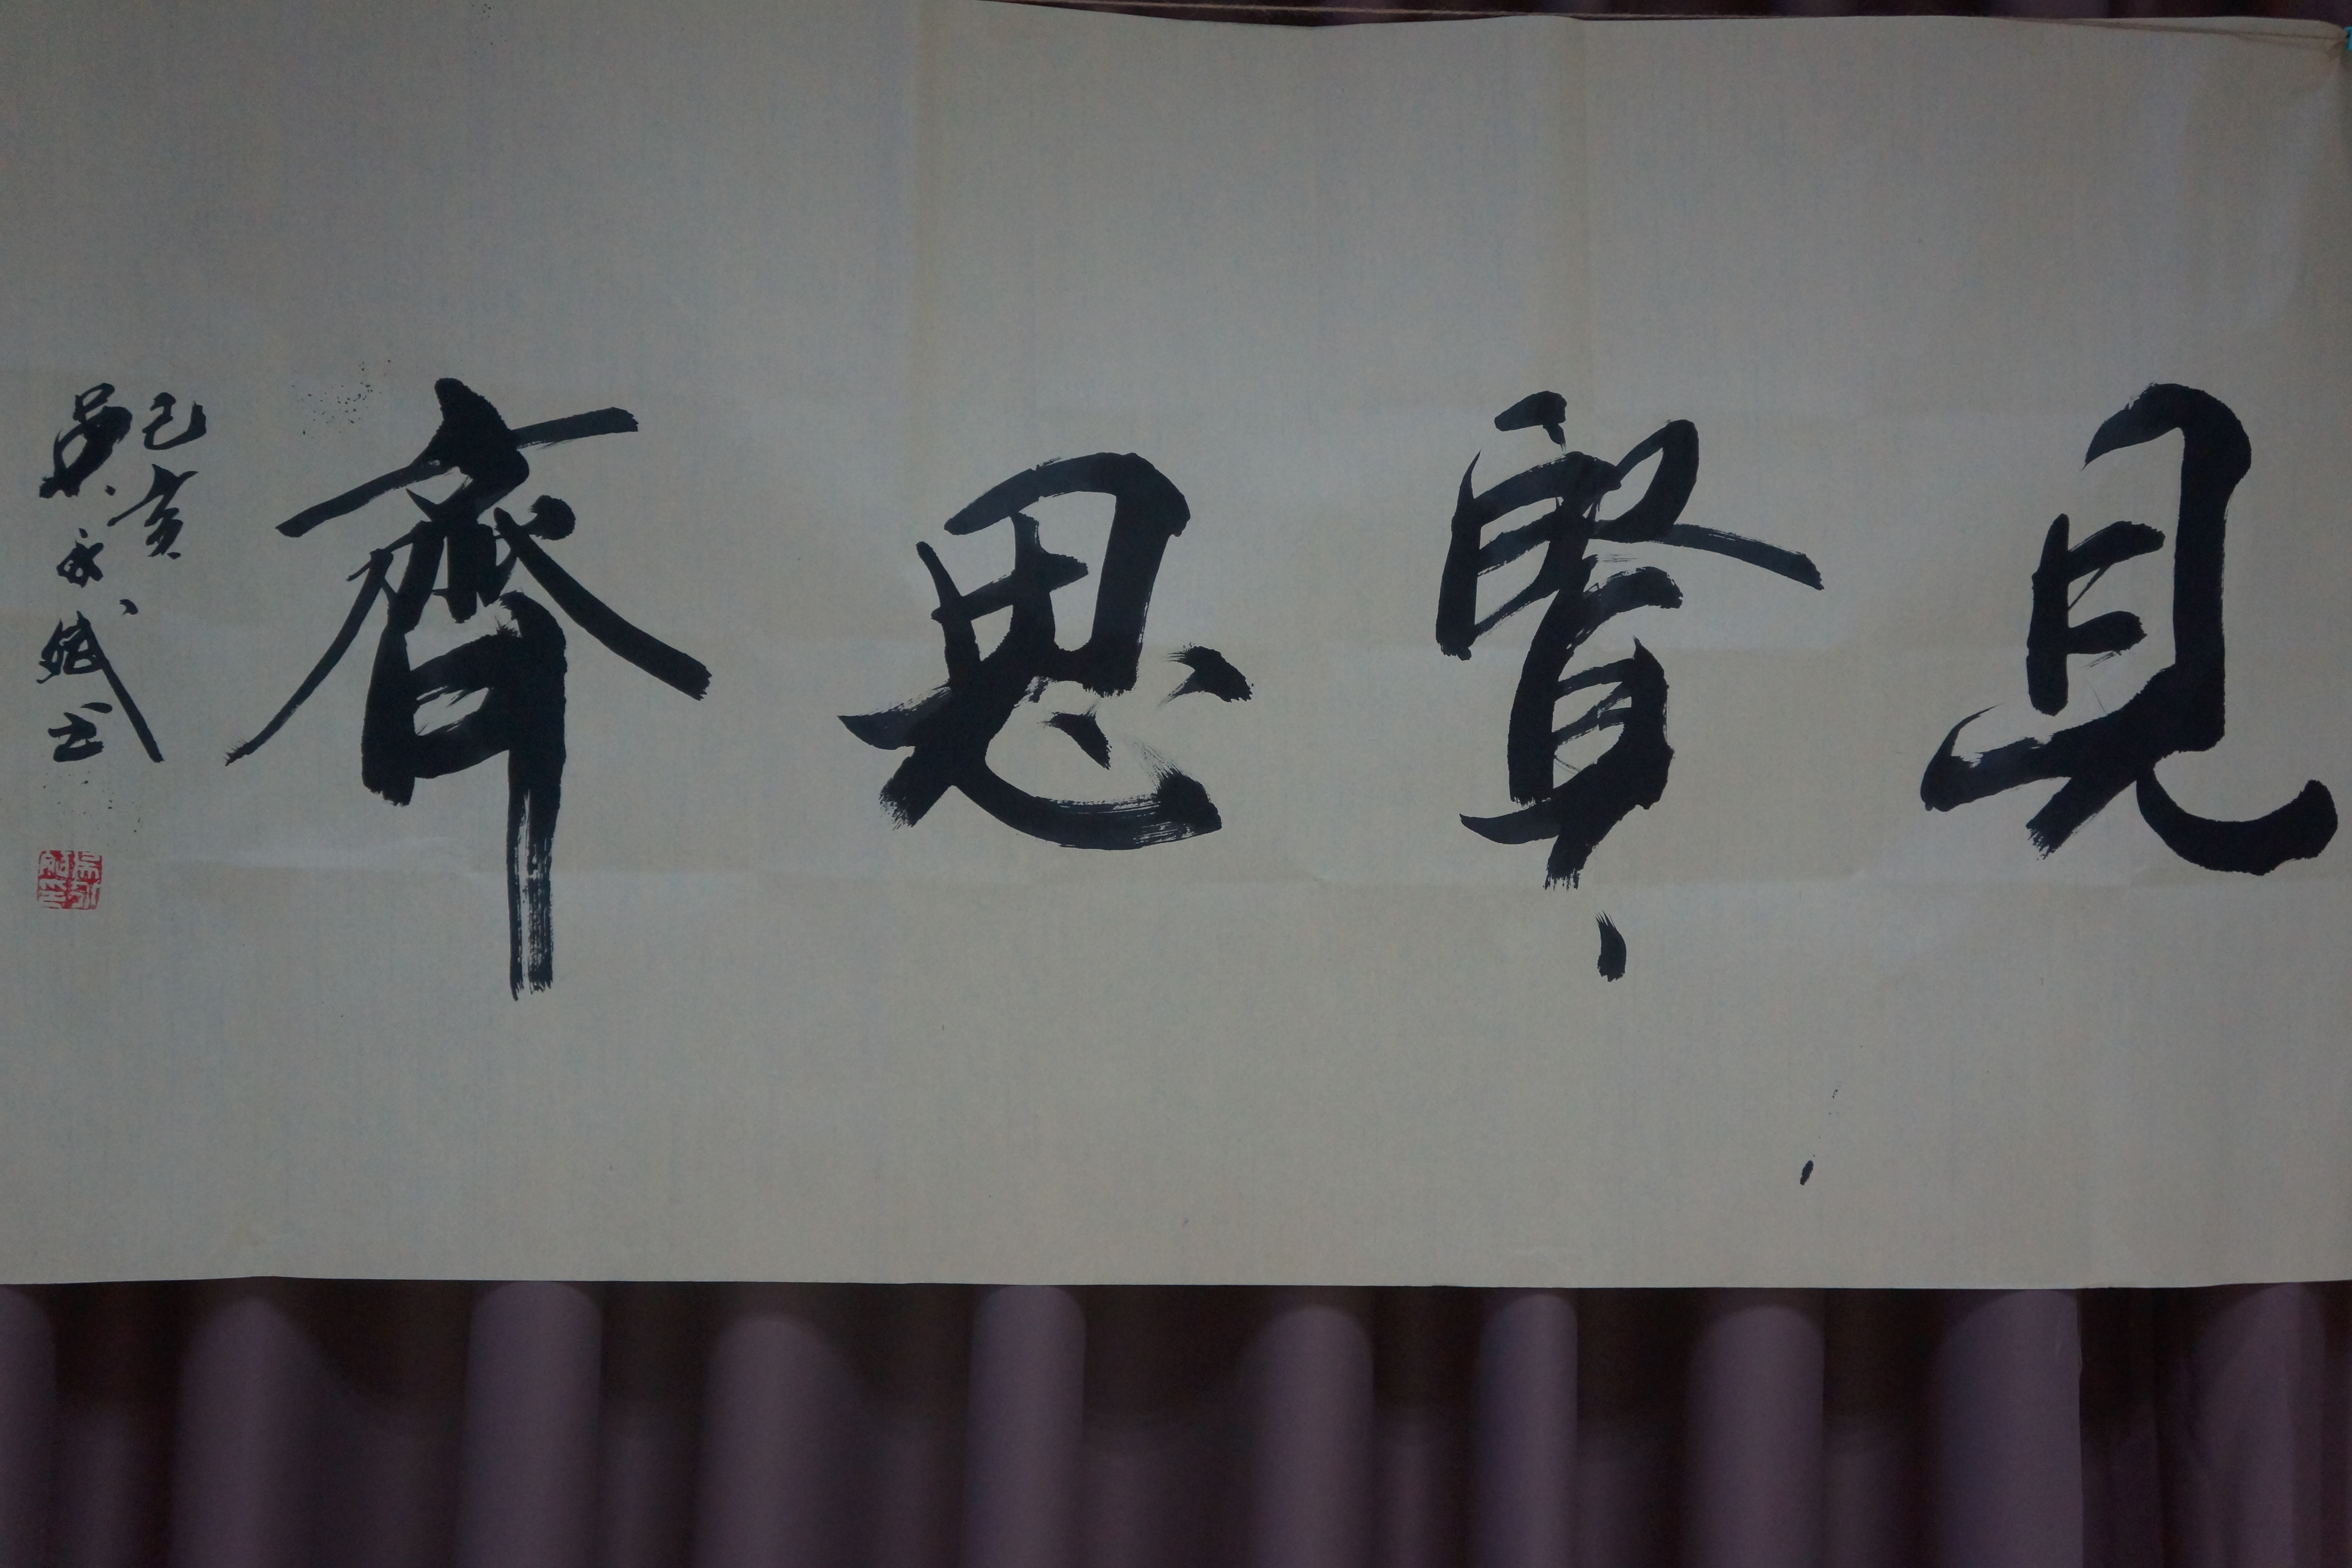 見賢思齊
己亥
吳永斌書